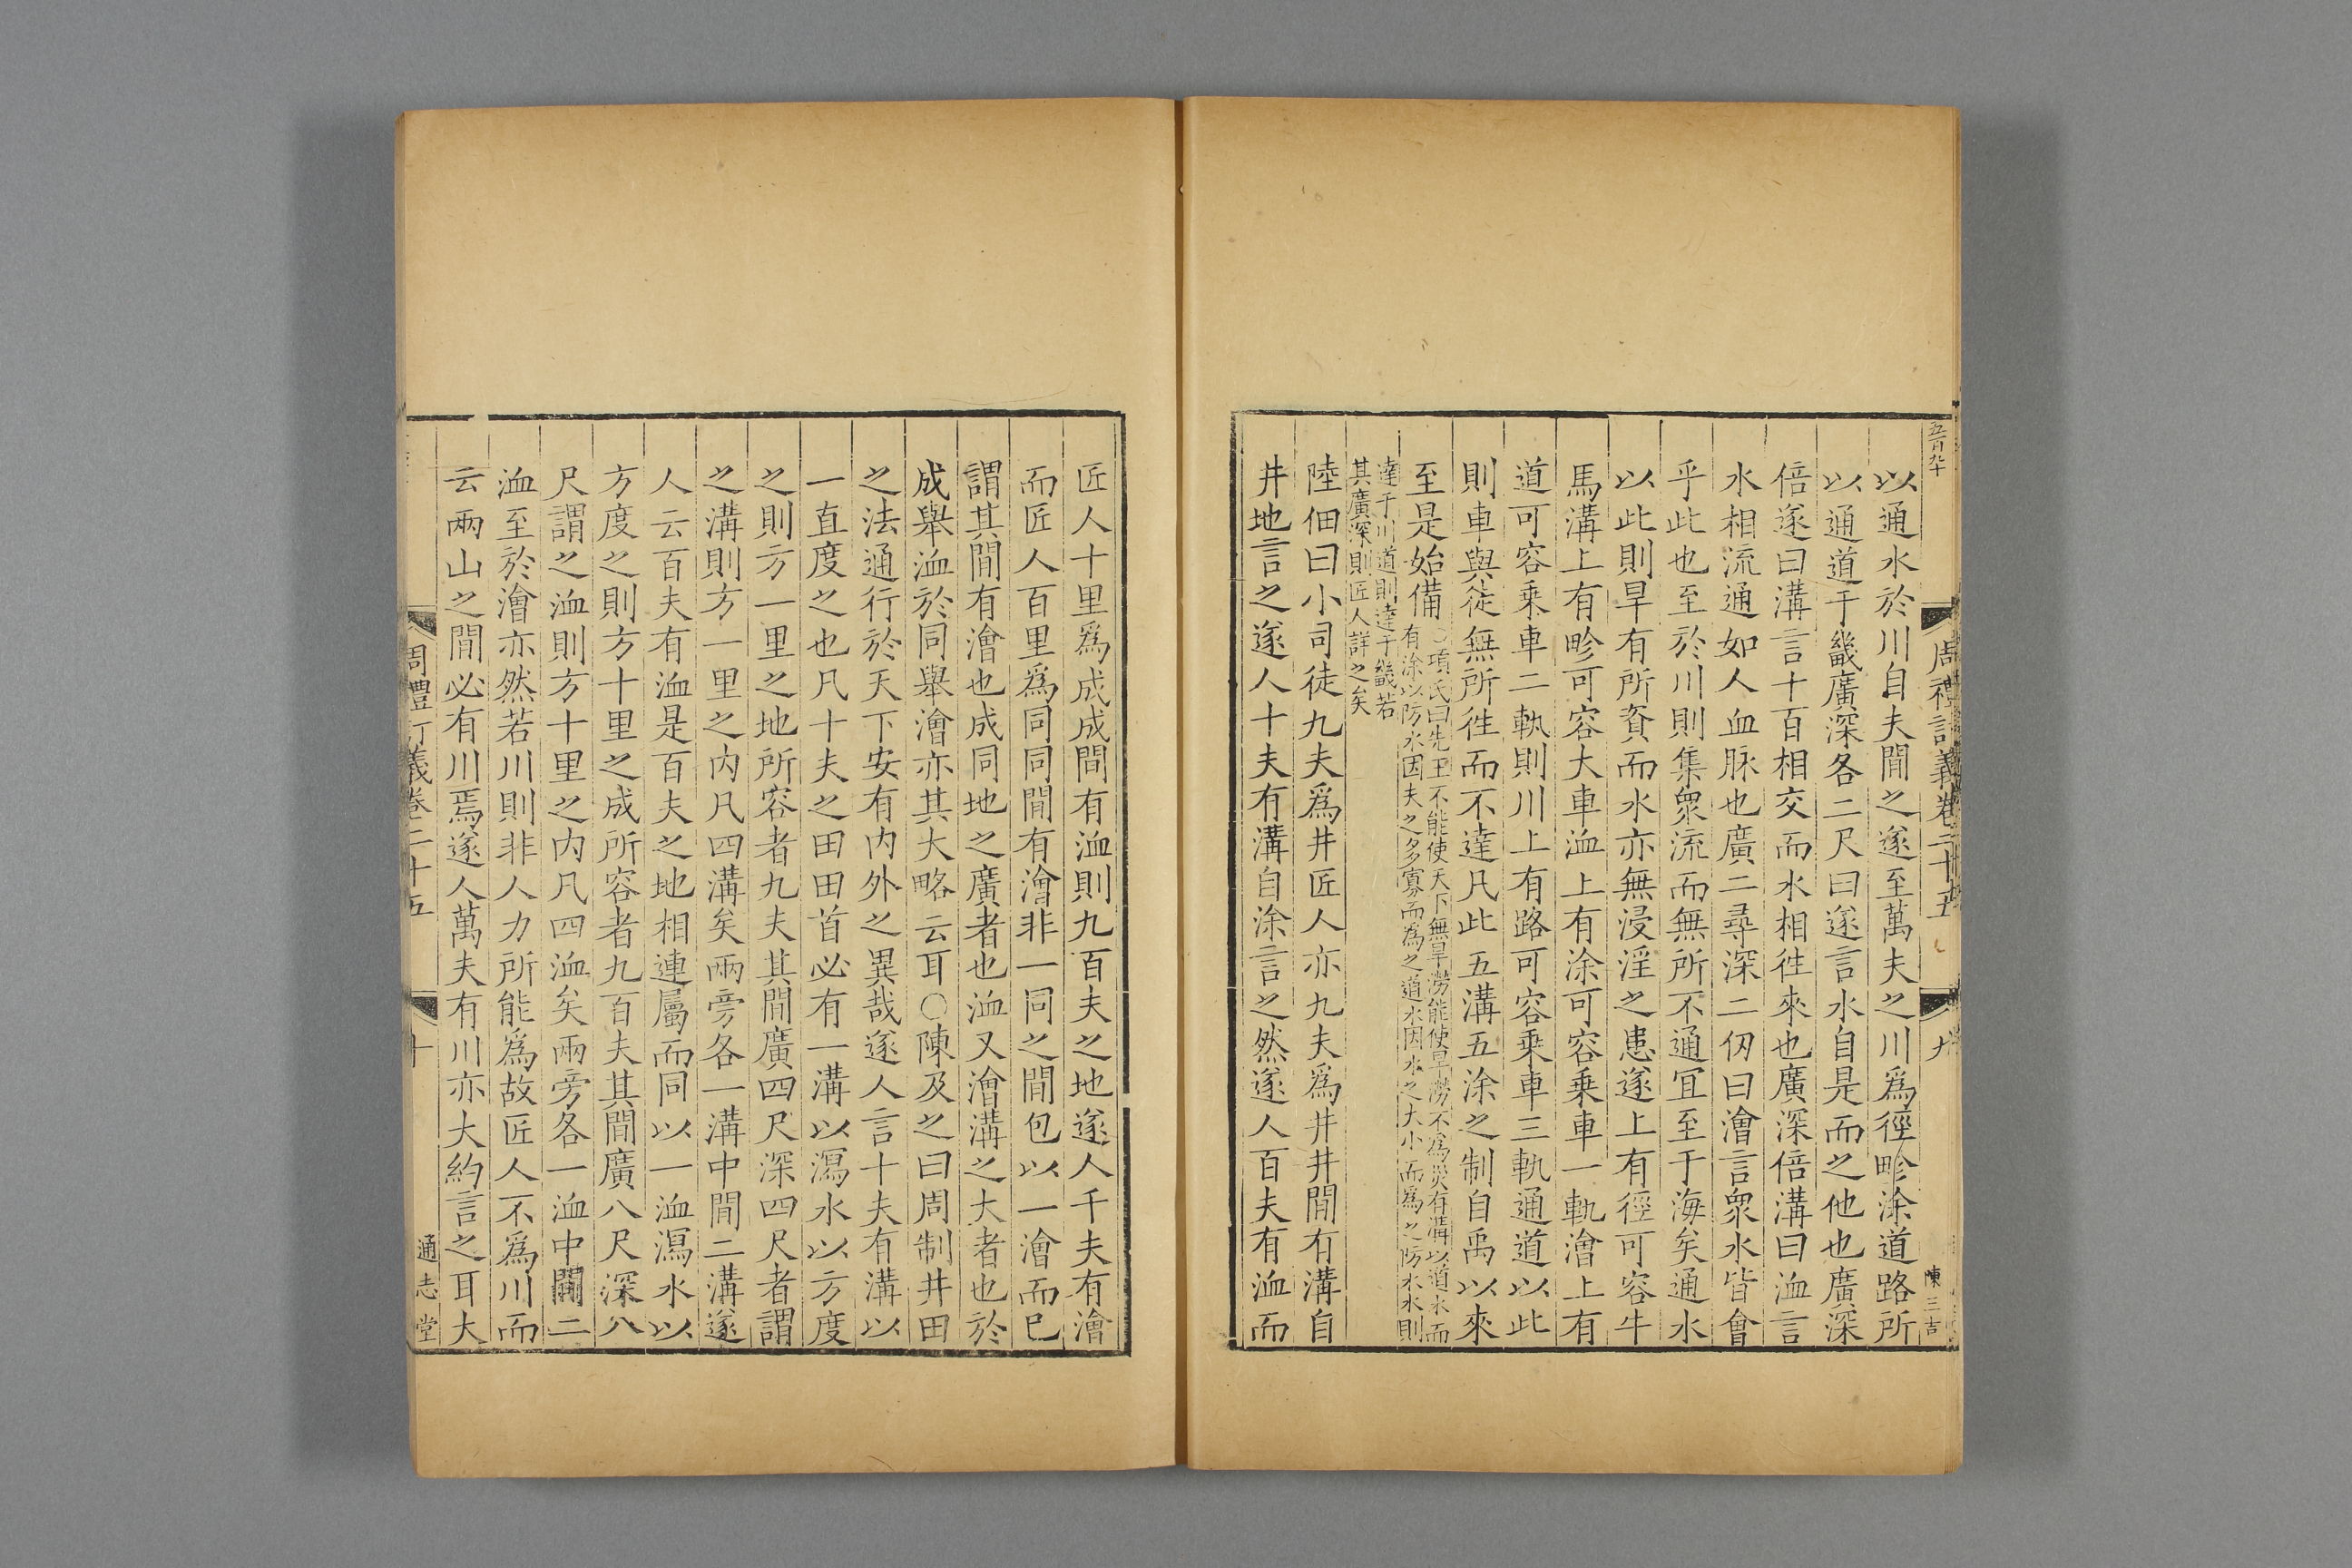 五百九十
周禮訂義卷二十五
九
陳三吉
以通水於川自夫間之遂至萬夫之川爲徑畛涂道路所
以通道于畿廣深各二尺曰遂言水自是而之他也廣深
倍遂曰溝言十百相交而水相徃來也廣深倍溝曰洫言
水相流通如人血脉也廣二尋深二仞曰澮言衆水皆會
乎此也至於川則集衆流而無所不通冝至于海矣通水
以此則旱有所資而水亦無浸淫之患遂上有徑可容牛
馬溝上有畛可容大車洫上有涂可容乗車一軌澮上有
道可容乗車二軌則川上有路可容乗車三軌通道以此
則車與徒無所徃而不達凡此五溝五涂之制自禹以來
至是始備○項氏曰先王不能使天下無旱澇能使旱澇不爲災有溝以道水而
有涂以防水因夫之多寡而爲之道水因水之大小而爲之防水水則
達于川道則達于畿若
其廣深則匠人詳之矣
陸佃曰小司徒九夫爲井匠人亦九夫爲井井間有溝自
井地言之遂人十夫有溝自涂言之然遂人百夫有洫而
匠人十里爲成成間有洫則九百夫之地遂人千夫有澮
而匠人百里爲同同間有澮非一同之間包以一澮而已
謂其間有澮也成同地之廣者也洫又澮溝之大者也於
成舉洫於同舉澮亦其大略云耳○陳及之曰周制井田
之法通行於天下安有内外之異哉遂人言十夫有溝以
一直度之也凡十夫之田田首必有一溝以瀉水以方度
之則方一里之地所容者九夫其間廣四尺深四尺者謂
之溝則方一里之内凡四溝矣兩旁各一溝中間二溝遂
人云百夫有洫是百夫之地相連屬而同以一洫瀉水以
方度之則方十里之成所容者九百夫其間廣八尺深八
尺謂之洫則方十里之内凡四洫矣兩旁各一洫中間二
洫至於澮亦然若川則非人力所能爲故匠人不爲川而
云兩山之間必有川焉遂人萬夫有川亦大約言之耳大
周禮訂義卷二十五
十
通志堂